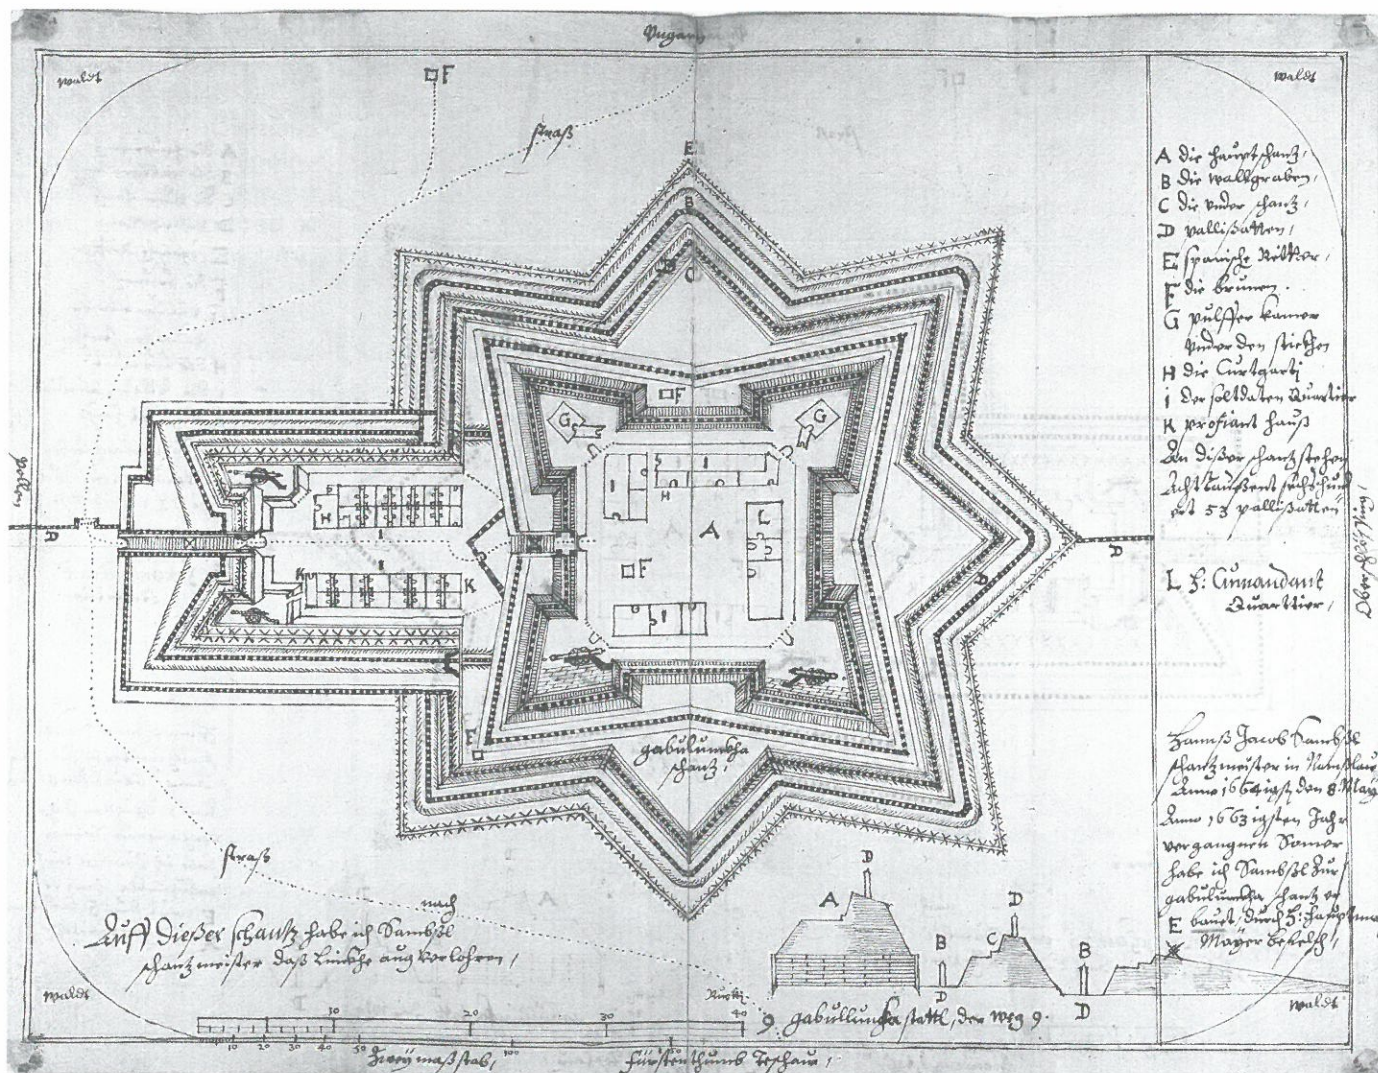 Ungarn
waldt
F
waldt
straß
E
A die hauptschantz,
B die wallgraben,
C die vnder schantz,
D pallißatten,
E spanische Reitter,
F die brunen.
G pulffer kamer
vnder den stickhen
H die Curtgarti
I der soldaten Quartier
K profiant hauß
An dißer schantz stehen
Acht taußent sechshund
ert 53 pallißatten
L H: Cumandant
Quarttier,
B
D
C
F
G
G
I
I
H
A
L
H
I
I
K
K
F
I
D
A
A
F
gabulumkha
schantz,
Hannß Jacob Sambßl
schantzmeister in Namßlau
Anno 1664igst den 8 May
Anno 1663igsten Jahr
vergangnen Somer
habe ich Sambßl zur
gabulumkha schantz er
E bauet, durch H: hauptman
Mayer befelch,
straß
nach
Auff dießer schantz habe ich Sambßl
schantzmeister daß Linckhe aug verlohren,
A
D
B
D
C
D
B
D
waldt
waldt
10
20
30
40
9 gabullunka stättl, der weg 9.
10
20
30
40
50
100
Zwey maßstab,
Fürstenthumb Teschaw,